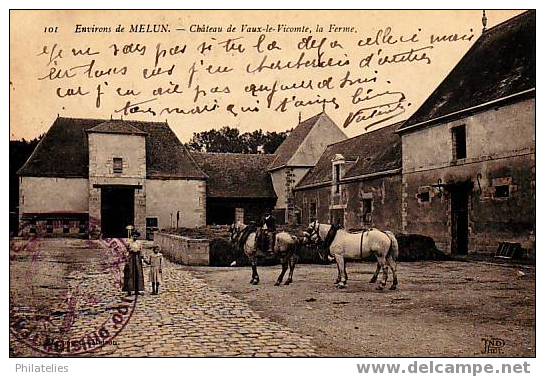 101 Environs de MELUN. — Château de Vaux-le-Vicomte, la Ferme.
je ne sais pas si tu la déjà celle ci mais
en tous cas j'en chercherais d'autres
car j'en ai pas aujourd'hui
ton mari qui t'aime bien
ND
Phot.
Philatelies
http://www.delcampe.net